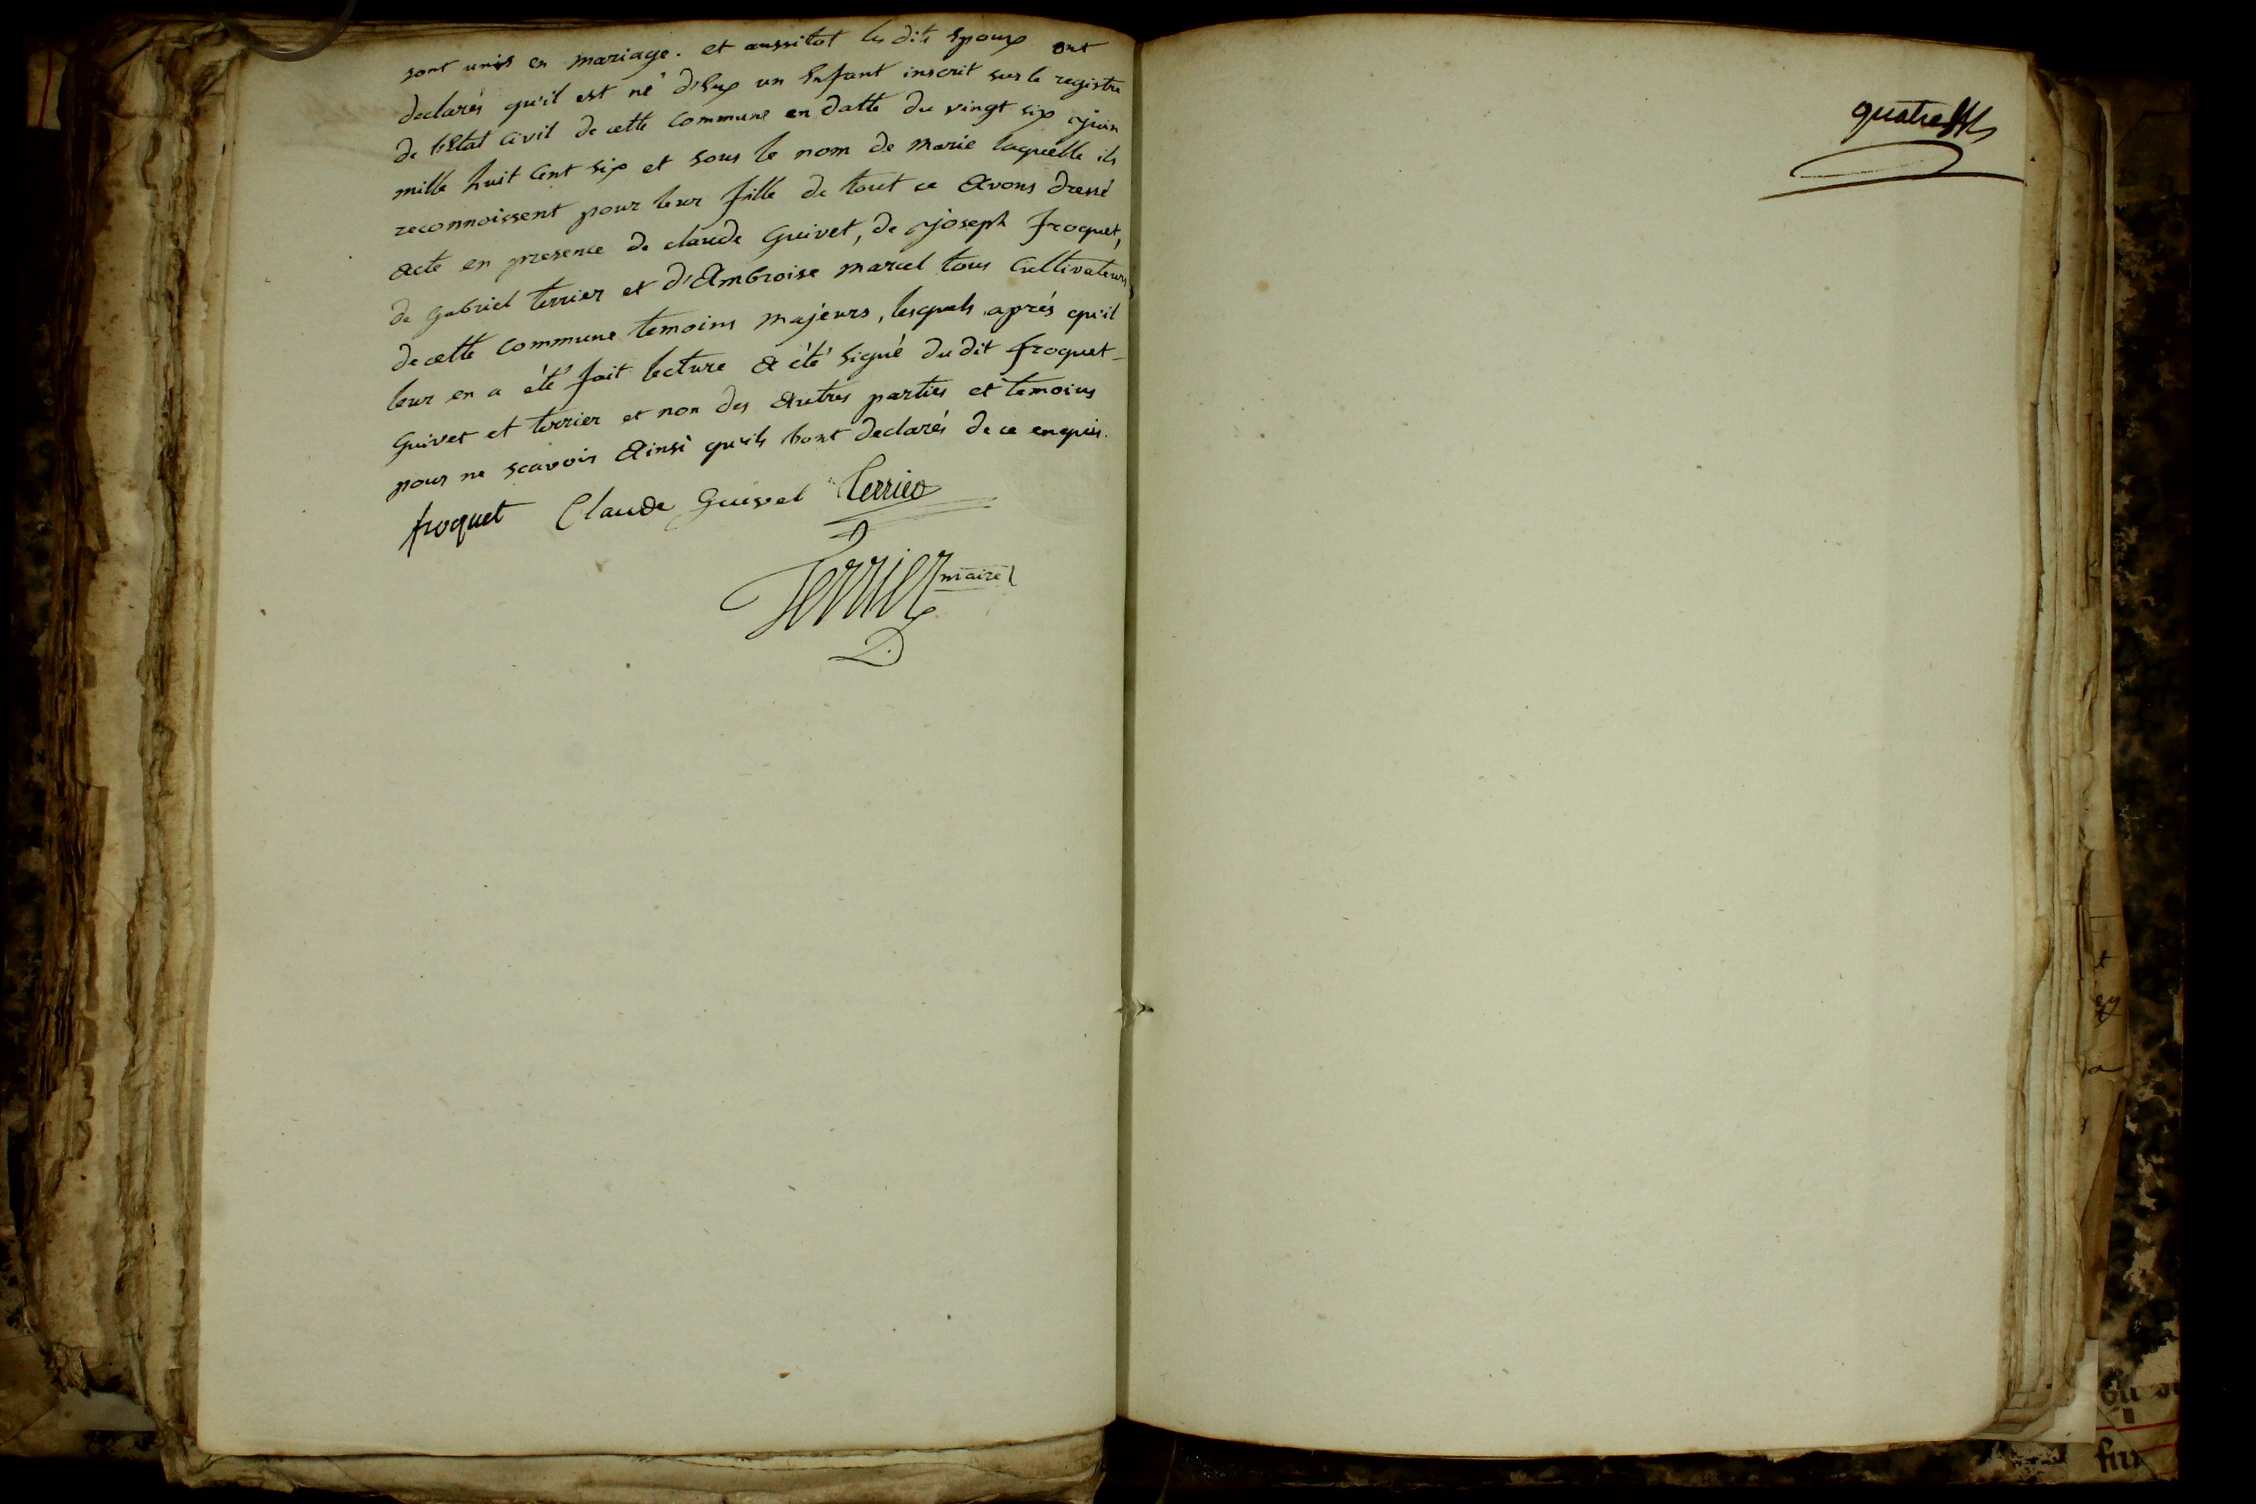 sont unis en mariage. et aussitot les dits Epoux ont
declarés qu'il est né d'Eux un Enfant inscrit sur le registre
de l'Etat Civil de cette Commune en datte du vingt six juin
mille huit Cent six et sous le nom de marie laquelle ils
reconnoissent pour leur fille de tout ce Avons dressé
Acte en presence de claude Guivet, de joseph froquet,
de gabriel terrier et d'Ambroise marcel tous Cultivateurs
de cette Commune temoins majeurs, lesquels après qu'il
leur en a été fait lecture A été signé du dit froquet
Guivet et terrier et non des Autres parties et temoins
pour ne scavoir Ainsi qu'ils l'ont declarés de ce enquis.
froquet Claude Guivet Terrier
Terrier maire
quatre